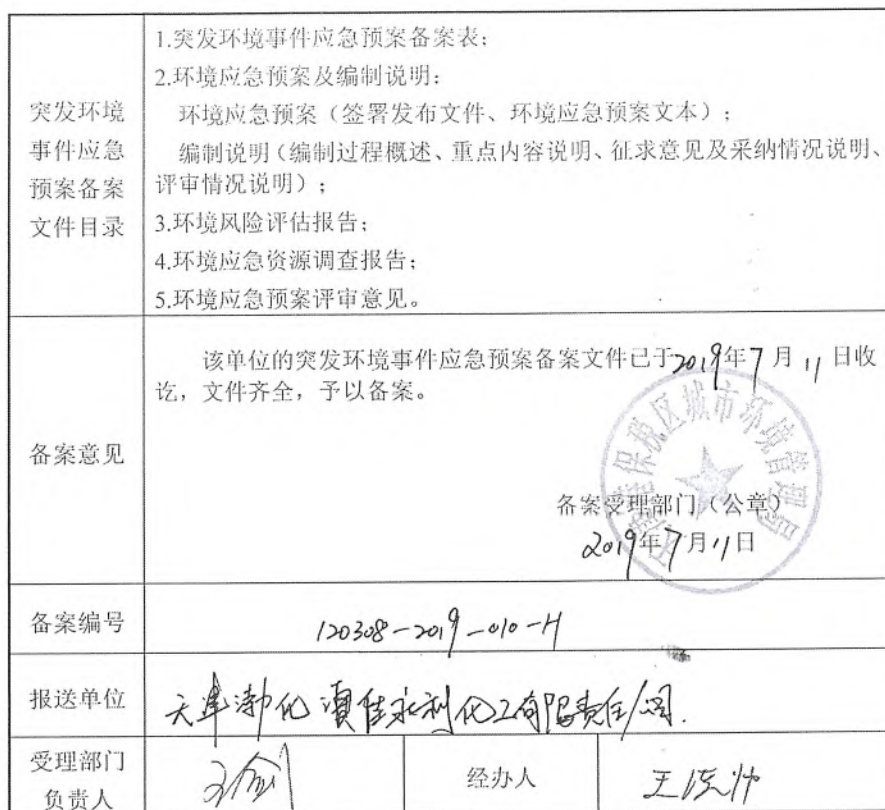 突发环境
事件应急
预案备案
文件目录
1.突发环境事件应急预案备案表；
2.环境应急预案及编制说明：
环境应急预案（签署发布文件、环境应急预案文本）；
编制说明（编制过程概述、重点内容说明、征求意见及采纳情况说明、
评审情况说明）；
3.环境风险评估报告；
4.环境应急资源调查报告；
5.环境应急预案评审意见。
备案意见
该单位的突发环境事件应急预案备案文件已于2019年7月11日收
讫，文件齐全，予以备案。
保税区城市环境管理局
备案受理部门（公章）
2019年7月11日
备案编号
120308-2019-010-H
报送单位
天津渤化澳佳永利化工有限责任公司.
受理部门
负责人
经办人